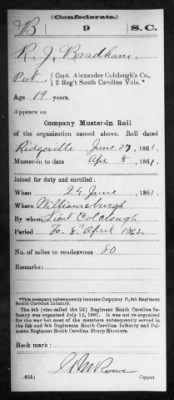 (Confederate.)
B 9 S.C.
R. J. Bradham
Pvt { Capt. Alexander Colclough's Co.,
2 Reg't South Carolina Vols.*
Age 19 years.
Appears on
Company Muster-in Roll
of the organization named above. Roll dated
Ridgeville June 27, 1861.
Muster-in to date Apr 8, 1861.
Joined for duty and enrolled:
When 24 June, 1861.
Where Williamsburgh
By whom Lieut Colclough
Period To 8" April 1862.
No. of miles to rendezvous 80
Remarks:
*This company subsequently became Company
South Carolina Infantry.
The 9th (also called the 2d) Regiment South Carolina Infantry
was organized July 12, 1861. It was not re-organized
for the war but most of the members subsequently served in
the 5th and 6th Regiments South Carolina Infantry and Palmetto
Regiment South Carolina Sharp Shooters.
Book mark:
Copyist.